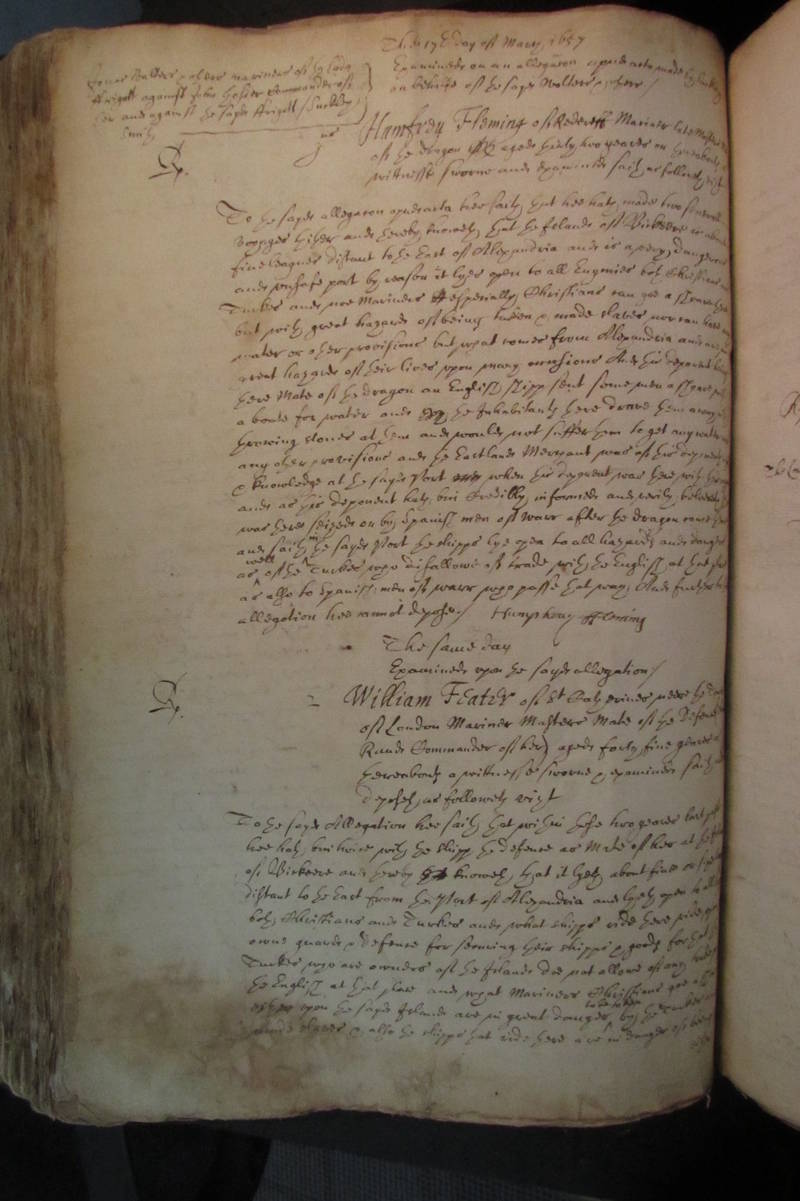 The 19th day of March, 1657
Examined on an allegacon apud acta made by
on behalfe of the sayd Walters & others./
Jonas Walters & others mariners of the Lady
Frigott against John Hosier Commander of
her and against the sayd Frigott / Suckley
Smith
Rp.
jus
Humfrey Fleming of Redereth Mariner late Master
of the dragon aged thirty two yeares or thereabouts
wittnesse sworne and examined saith as followeth vizt
To the sayd allegacon apud acta hee saith that hee hath made two severall
voyages thither and thereby knoweth that the Island of Bickeere is about
five leagues distant to the East of Alexandria and is a very dangerous
and unsafe port by reason it lyes open to all Enymies both Christians and
Turkes and noe Mariners especially Christians can goe a shoare there
but with great hazard of being taken & made slaves nor can have any
water or other provisions but what comes from Alexandria and
great hazard of their lives upon many occasions And this deponent being
there Mate of the dragon an English shipp sent some men a shoare with
a boate for water and the Inhabitants there drove them away
throwing stones at them and would not suffer them to get any water
any other provisions and the Eastland Merchant was of this deponents
knowledge at the sayd Port when this deponent was there with the
and as this deponent hath bin Credibly informed and verily beleiveth
was there seized on by Spanish men of Warr after the dragon came
and saith in the sayd Port the shipps lye open to all hazards and dangers
well
as of the Turkes who disallowe of trade with the English at that place
as also to Spanish men of warr who passe that way, And further to the
allegation hee cannot depose./ Humphrey Fleming
The same day
Examined upon the sayd allegation/
Rp.
2
William Feater of St Katherines neere the Tower
of London Mariner Masters Mate of the Defence
Rand Commander of her) aged forty five yeares or
thereabouts a wittnesse sworne & examined saith and
deposeth as followeth vizt
To the sayd Allegation hee saith that within these two yeares last past
hee hath bin twice with the shipp the defence as Mate of her at the Island
of Bickeere and thereby knoweth that it lyeth about five or six leagues
distant to the East from the Port of Alexandria and lyeth open to all
both Christians and Turkes and what shipps ride there ride upon
owne guard & defence for securing their shipps & goods for the
Turkes who are owners of the Island doe not allowe of any trade
the English at that place and what Mariners Christians goe a shoare
upon the sayd Island are in great danger to be taken by the Turkes and
made slaves & also the shipps that ride there are in danger of being